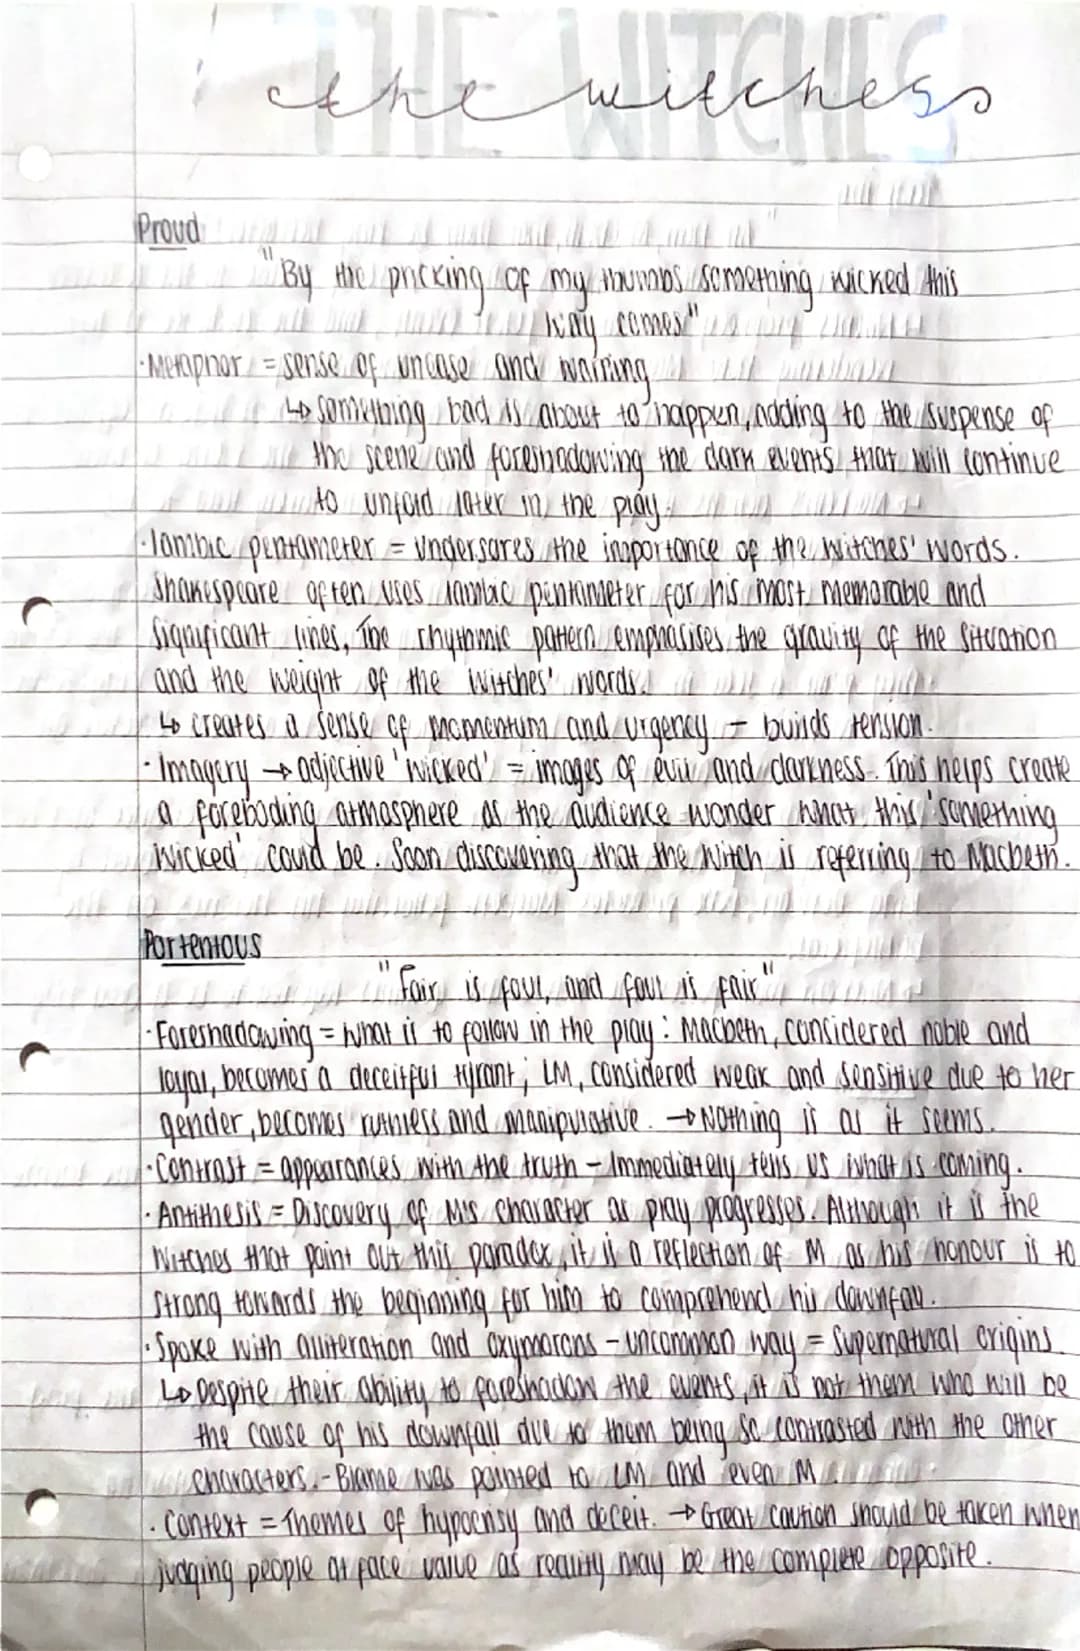 THE WITCHES
the witches
Proud
"By the pricking of my thumbs something wicked this
way comes"
·Metaphor = sense of unease and warning
↳ something bad is about to happen, adding to the suspense of
the scene and foreshadowing the dark events that will continue
to unfold later in the play.
·Iambic pentameter = underscores the importance of the witches' words.
Shakespeare often uses iambic pentameter for his most memorable and
significant lines, The rhythmic pattern emphasises the gravity of the situation
and the weight of the witches' words.
↳ creates a sense of momentum and urgency - builds tension.
·Imagery → adjective 'wicked' = images of evil and darkness. This helps create
a foreboding atmosphere as the audience wonder what this 'something
wicked' could be. Soon discovering that the witch is referring to Macbeth.
Portentous
"fair is foul, and foul is fair"
·Foreshadowing = what is to follow in the play: Macbeth, considered noble and
loyal, becomes a deceitful tyrant; LM, considered weak and sensitive due to her
gender, becomes ruthless and manipulative. → Nothing is as it seems.
·Contrast = appearances with the truth - Immediately tells us what is coming.
·Antithesis = Discovery of M's character as play progresses. Although it is the
witches that point out this paradox, it is a reflection of M as his honour is to
strong towards the beginning for him to comprehend his downfall.
·Spoke with alliteration and oxymorons - uncommon way = supernatural origins.
↳ Despite their ability to foreshadow the events, it is not them who will be
the cause of his downfall due to them being so contrasted with the other
characters. - Blame was pointed to LM and even M.
·Context = Themes of hypocrisy and deceit. → Great caution should be taken when
judging people at face value as reality may be the complete opposite.